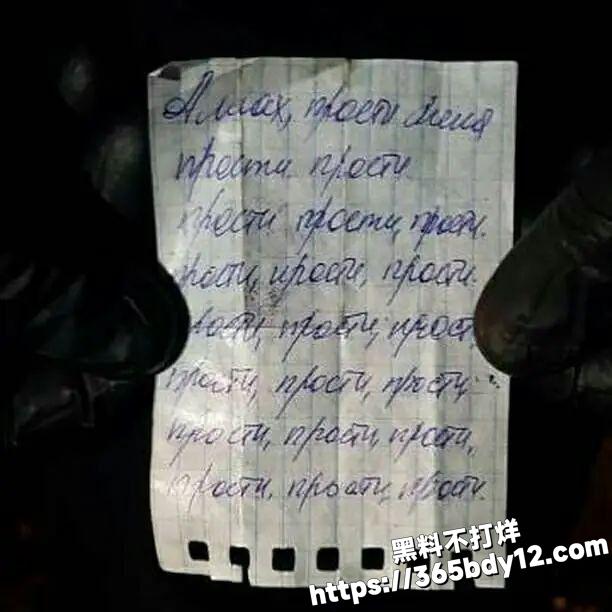 Аллах, прости меня
прости прости.
прости прости, прости.
прости, прости, прости.
прости, прости, прост
прости, прости, прости,
прости, прости, прости,
прости, прости, прости.
黑料不打烊
https://365bdy12.com